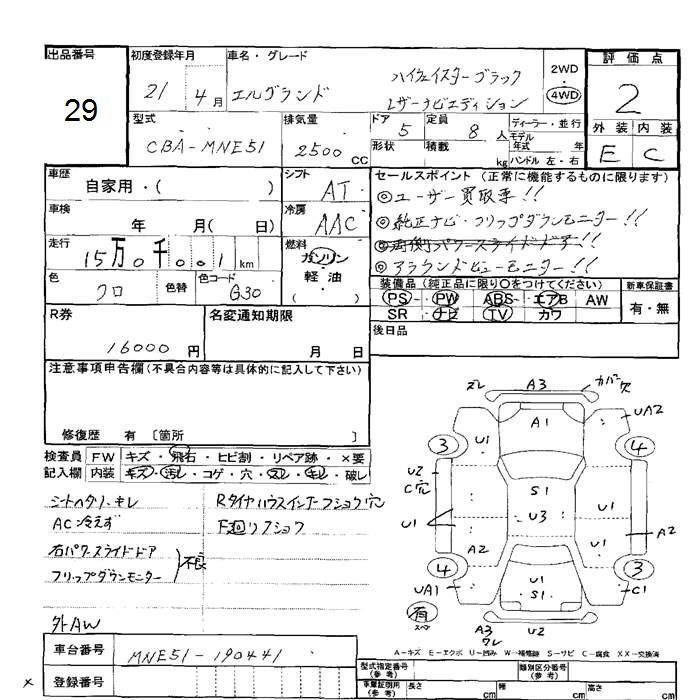 出品番号
29
初度登録年月
21 4月
車名・グレード
エルグランド
ハイウェイスターブラック
レザーナビエディション
2WD
・
4WD
評価点
2
外装 内装
E C
型式
CBA-MNE51
排気量
2500 CC
ドア
5
形状
定員
8人
積載
kg
ディーラー・並行
モデル
年式 年
ハンドル 左・右
車歴
自家用・( )
シフト
AT
車検
年 月( 日)
冷房
AAC
走行
15万0千001km
燃料
ガソリン
軽油
( )
色
クロ
色替
色コード
G30
セールスポイント (正常に機能するものに限ります)
◎ユーザー買取車!!
◎純正ナビ・フリップダウンモニター!!
◎両側パワースライドドア!!
◎アラウンドビューモニター!!
装備品(純正品に限り○をつけてください)
PS PW ABS エアB AW
SR ナビ TV カワ
新車保証書
有・無
後日品
R券
16000円
名変通知期限
月 日
注意事項申告欄(不具合内容等は具体的に記入して下さい)
修復歴 有 〔箇所 〕
検査員 FW キズ・飛石・ヒビ割・リペア跡・×要
記入欄 内装 キズ・汚レ・コゲ・穴・スレ・キレ・破レ
シートヘタリ・キレ
AC冷えず
右パワースライドドア
フリップダウンモニター
不良
RタイヤハウスインナーフショウOK穴
F廻リフショク
外AW
車台番号
MNE51-190441
登録番号
×
スレ A3 カバー欠
A1
UA2
U1
3
4
U2
C穴
S1
U3
U1
U1
A2
A2
4
3
UA1
U1
S1
C1
有
スペア
A3
ワレ
U2
A-キズ E-エクボ U-凹み W-補修跡 S-サビ C-腐食 XX-交換済
型式指定番号
(参考)
類別区分番号
(参考)
車庫証明用
(参考)
長さ cm
幅 cm
高さ cm